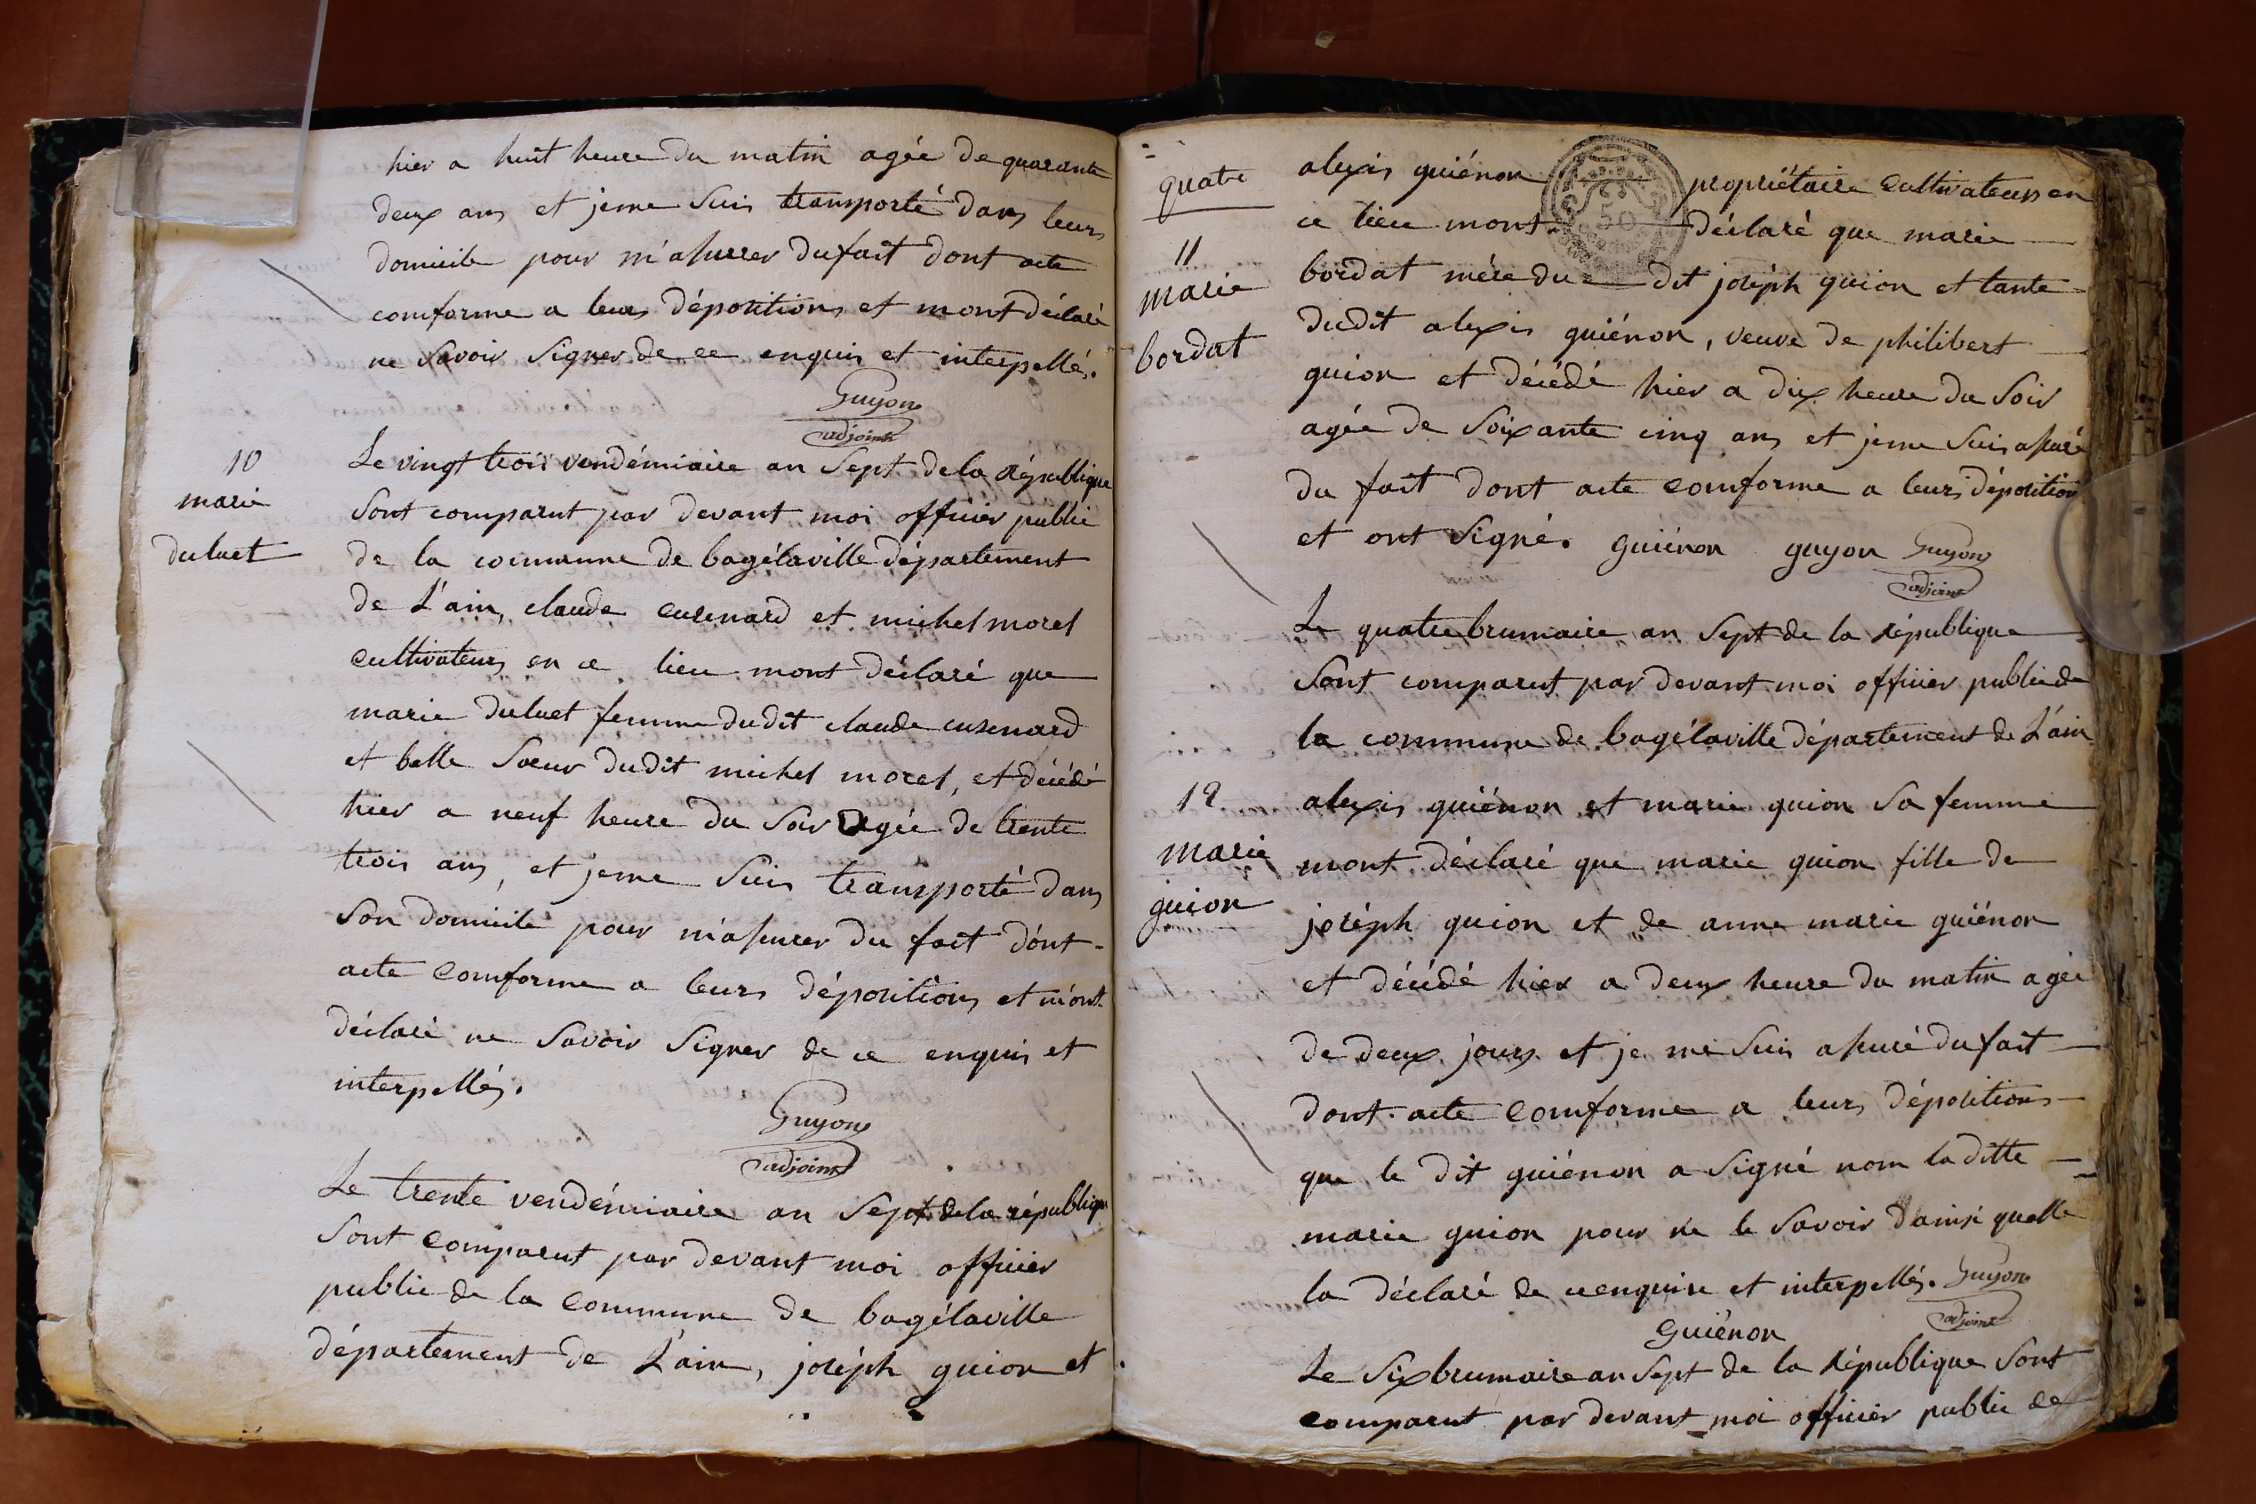 hier a huit heure du matin agée de quarante
deux ans et jeme suis transporté dans leurs
domicile pour m'assurer du fait dont acte
comforme a leurs dépositions et mont déclaré
ne savoir signer de ce enquis et interpellés.
Guyon
adjoint
10
marie
duluet
Le vingt trois vendémiaire an sept de la république
sont comparut par devant moi officier public
de la commune de bagélaville département
de L'ain, claude cusenard et michel morel
cultivateurs en ce lieu mont déclaré que
marie duluet femme dudit claude cusenard
et belle soeur dudit michel morel, et décédé
hier a neuf heure du soir agée de trente
trois ans, et jeme suis transporté dans
son domicile pour m'assurer du fait dont
acte comforme a leurs dépositions et m'ont
déclaré ne savoir signer de ce enquis et
interpellés.
Guyon
adjoint
Le trente vendémiaire an sept de la république
sont comparut par devant moi officier
public de la commune de bagélaville
département de L'ain, joséph guion et
quatre
alexis guiénon propriétaire cultivateurs en
50
ce lieu mont déclaré que marie
11
marie
bordat
bordat mére du dit joséph guion et tante
dudit alexis guiénon, veuve de philibert
guion et décédé hier a dix heure du soir
agée de soixante cinq ans et jeme suis assuré
du fait dont acte comforme a leurs déposition
et ont signé. guiénon guyon Guyon
adjoint
Le quatre brumaire an sept de la république
sont comparut par devant moi officier public de
la commune de bagélaville département de L'ain
12
marie
guion
alexis guiénon et marie guion sa femme
mont déclaré que marie guion fille de
joséph guion et de anne marie guiénon
et décédé hier a deux heure du matin agée
de deux jours et je me suis assuré du fait
dont acte comforme a leurs dépositions
que le dit guiénon a signé nom laditte
marie guion pour ne le savoir d'ainsi quelle
la déclaré de ce enquise et interpellés. Guyon
adjoint
guiénon
Le six brumaire an sept de la république sont
comparut par devant moi officier public de